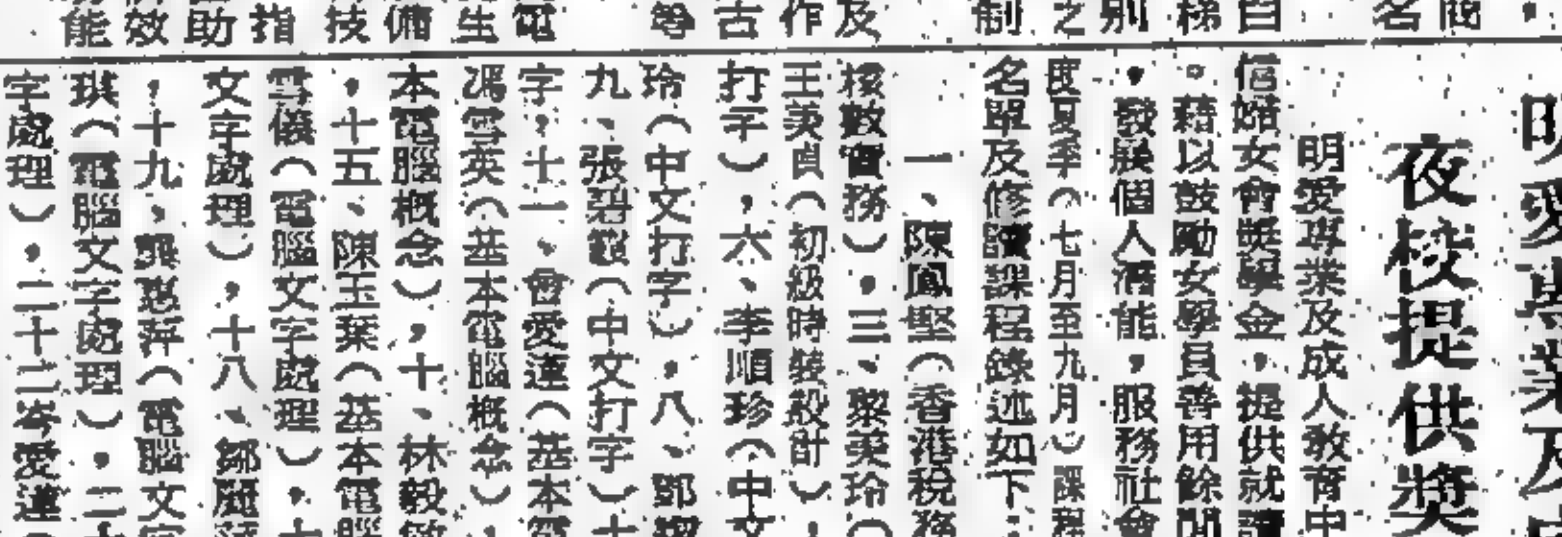 明愛專業及
夜校提供獎
明愛專業及成人教育中
信婦女會獎學金，提供就讀
。藉以鼓勵女學員善用餘閒
，發展個人潛能，服務社會
度夏季（七月至九月）課程
名單及修讀課程錄述如下：
一、陳鳳堅（香港稅務
核數實務），三、黎美玲（
王美貞（初級時裝設計），
打字），六、李順珍（中文
玲（中文打字），八、鄧
九、張碧（中文打字）十
字，十一、曾愛蓮（基本電
馮雪英（基本電腦概念），
本電腦概念），十、林毅敏
，十五、陳玉葉（基本電腦
雪儀（電腦文字處理），十
文字處理），十八、鄒麗
，十九、吳惠萍（電腦文字
琪（電腦文字處理），二十
字處理），二十二岑愛蓮（
商
名
自
梯
別
之
制
及
作
古
等
電
生
備
技
指
助
效
能